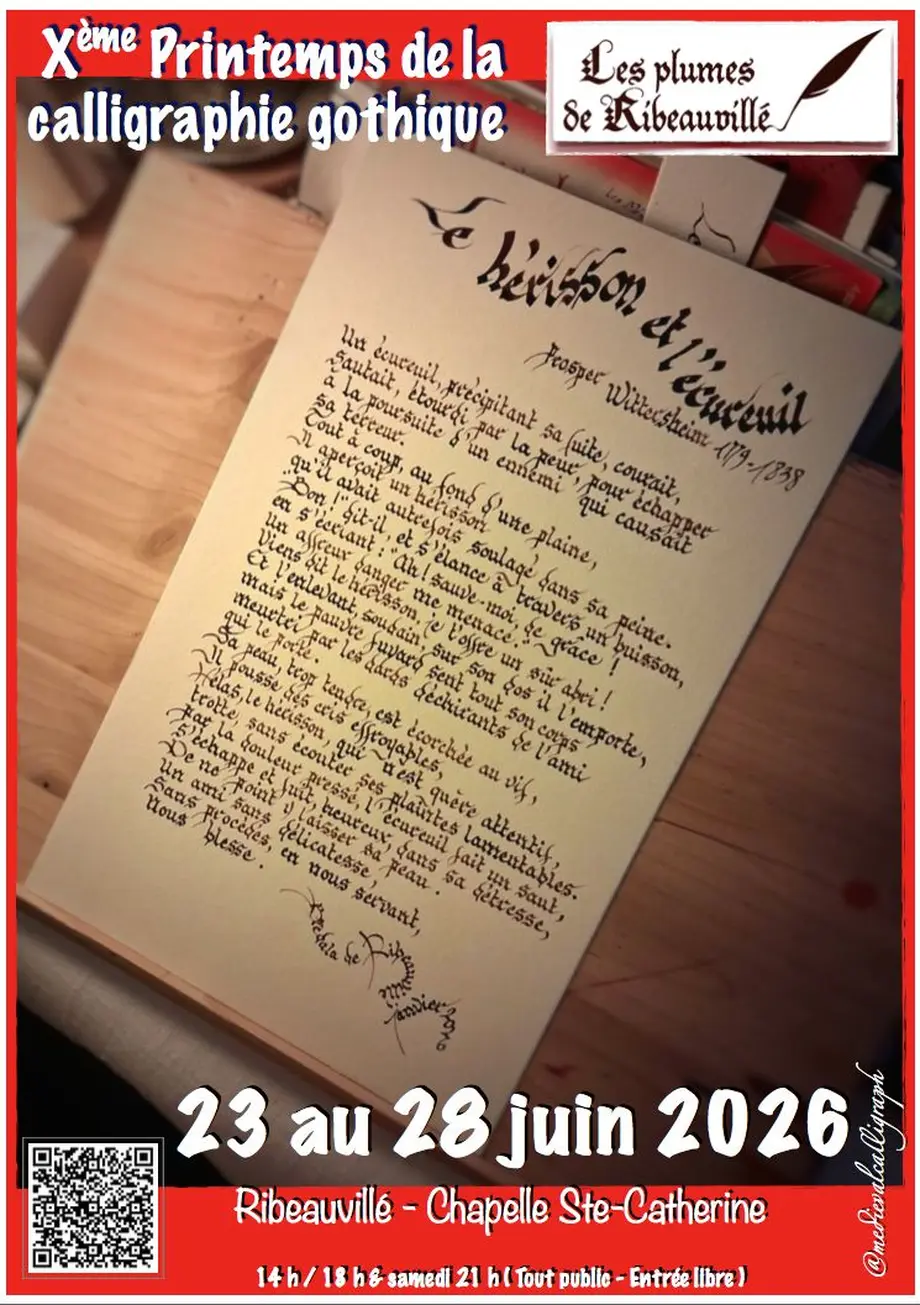 Xème Printemps de la
calligraphie gothique
Les plumes
de Ribeauvillé
Le hérisson et l'écureuil
Prosper Wittersheim 1779-1838
Un écureuil, précipitant sa fuite, courait,
Sautait, étourdi par la peur, pour échapper
à la poursuite d'un ennemi qui causait
sa terreur.
Tout à coup, au fond d'une plaine,
Il aperçoit un hérisson
qu'il avait autrefois soulagé dans sa peine.
Bon !" dit-il, et s'élance à travers un buisson,
en s'écriant : "Ah ! sauve-moi, de grâce !
Un affreux danger me menace."
Viens dit le hérisson, je t'offre un sûr abri !
Et l'enlevant, soudain sur son dos il l'emporte,
mais le pauvre fuyard sent tout son corps
meurtri par les dards déchirants de l'ami
qui le porte.
Sa peau, trop tendre, est écorchée au vif,
Il pousse des cris effroyables,
Hélas, le hérisson, qui n'est guère attentif,
trotte, sans écouter ses plaintes lamentables.
Par la douleur pressé, l'écureuil fait un saut,
S'échappe et fuit, heureux, dans sa détresse,
De ne point y laisser sa peau.
Un ami sans délicatesse,
Sans procédés, en nous servant,
Nous blesse.
de Ribeauvillé
janvier
23 au 28 juin 2026
Ribeauvillé - Chapelle Ste-Catherine
14 h / 18 h & samedi 21 h ( Tout public - Entrée libre )
@medievalcalligraph